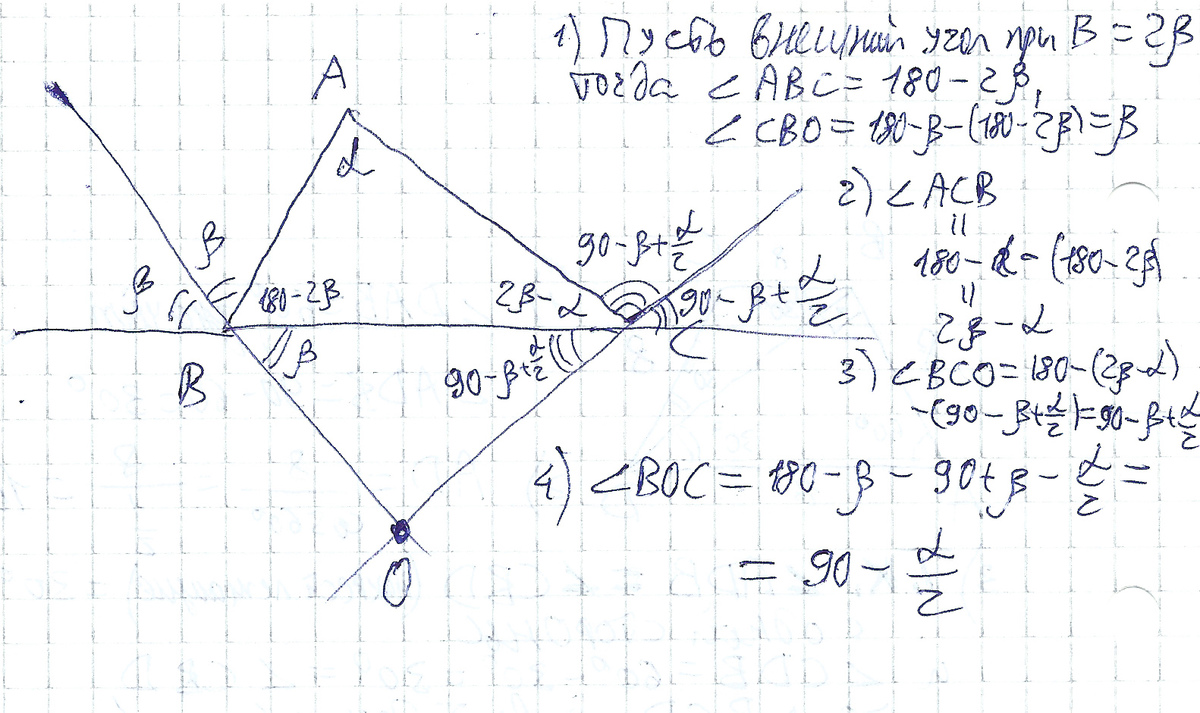 1) Пусть внешний угол при B = 2β
тогда ∠ABC = 180 - 2β,
∠CBO = 180-β-(180-2β)=β
2) ∠ACB
=
180-α-(180-2β)
=
2β-α
3) ∠BCO=180-(2β-α)
-(90-β+α/2)=90-β+α/2
4) ∠BOC = 180-β-90+β-α/2=
= 90-α/2
A
α
β
β
180-2β
2β-α
90-β+α/2
90-β+α/2
B
β
90-β+α/2
C
O